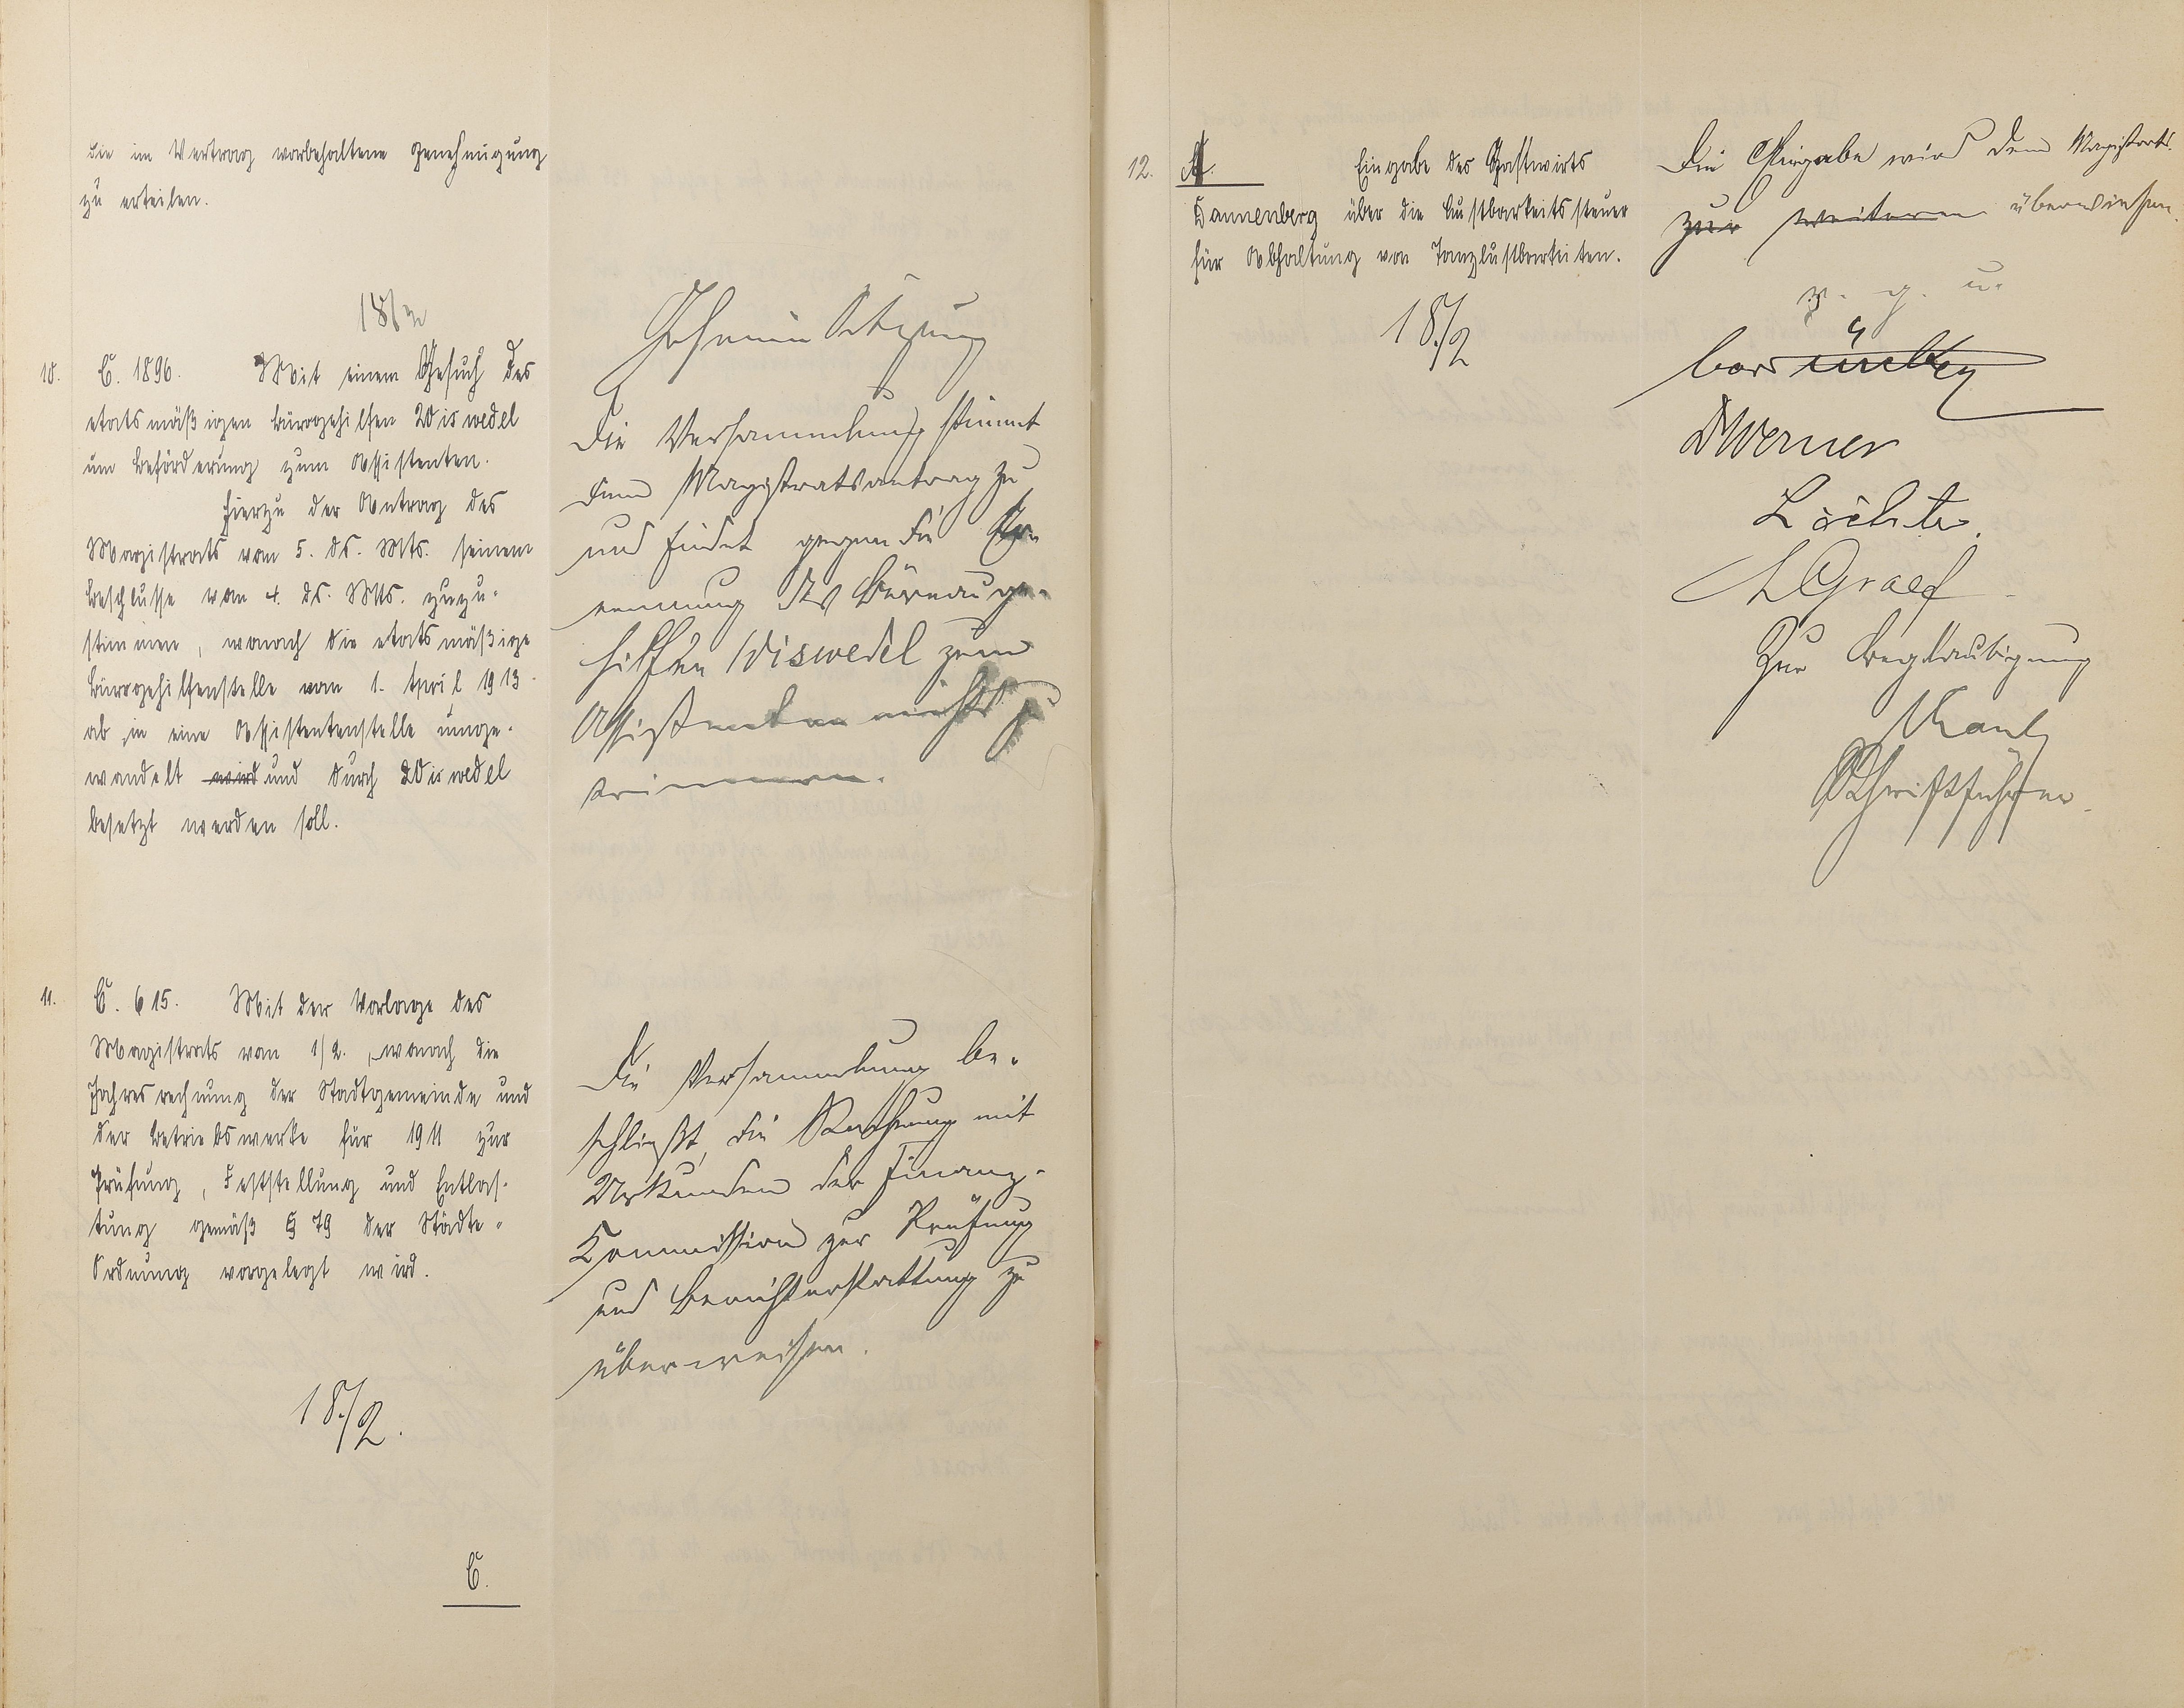 die im Vertrag vorbehaltene Genehmigung
zu erteilen.
18/2
10. C. 1896. Mit einem Gesuch des
etatsmäßigen Bürogehilfen Wiswedel
um Beförderung zum Assistenten.
Hierzu der Antrag des
Magistrats vom 5. ds. Mts. seinem
Beschlusse vom 4. ds. Mts. zuzu-
stimmen, wonach die etatsmäßige
Bürogehilfenstelle vom 1. April 1913
ab in eine Assistentenstelle umge-
wandelt wird und durch Wiswedel
besetzt werden soll.
Geheime Sitzung
Die Versammlung stimmt
dem Magistratsantrag zu
und findet gegen die Er-
nennung des Büreauge-
hilfen Wiswedel zum
Assistenten nichts zu
erinnern.
11. C. 615. Mit der Vorlage des
Magistrats vom 1/2., wonach die
Jahresrechnung der Stadtgemeinde und
der Betriebswerke für 1911 zur
Prüfung, Feststellung und Entlas-
tung gemäß § 79 der Städte-
Ordnung vorgelegt wird.
18./2.
C.
Die Versammlung be-
schließt, die Rechnung mit
Urkunden der Finanz-
Kommission zur Prüfung
und Berichterstattung zu
überweisen.
12. Eingabe des Gastwirts
Dannenberg über die Lustbarkeitssteuer
für Abhaltung von Tanzlustbarkeiten.
18./2
Die Eingabe wird dem Magistrat
zur weiteren überwiesen.
v. g. u.
DWerner
Löchte.
Graef
Zur Beglaubigung
Schriftführer.